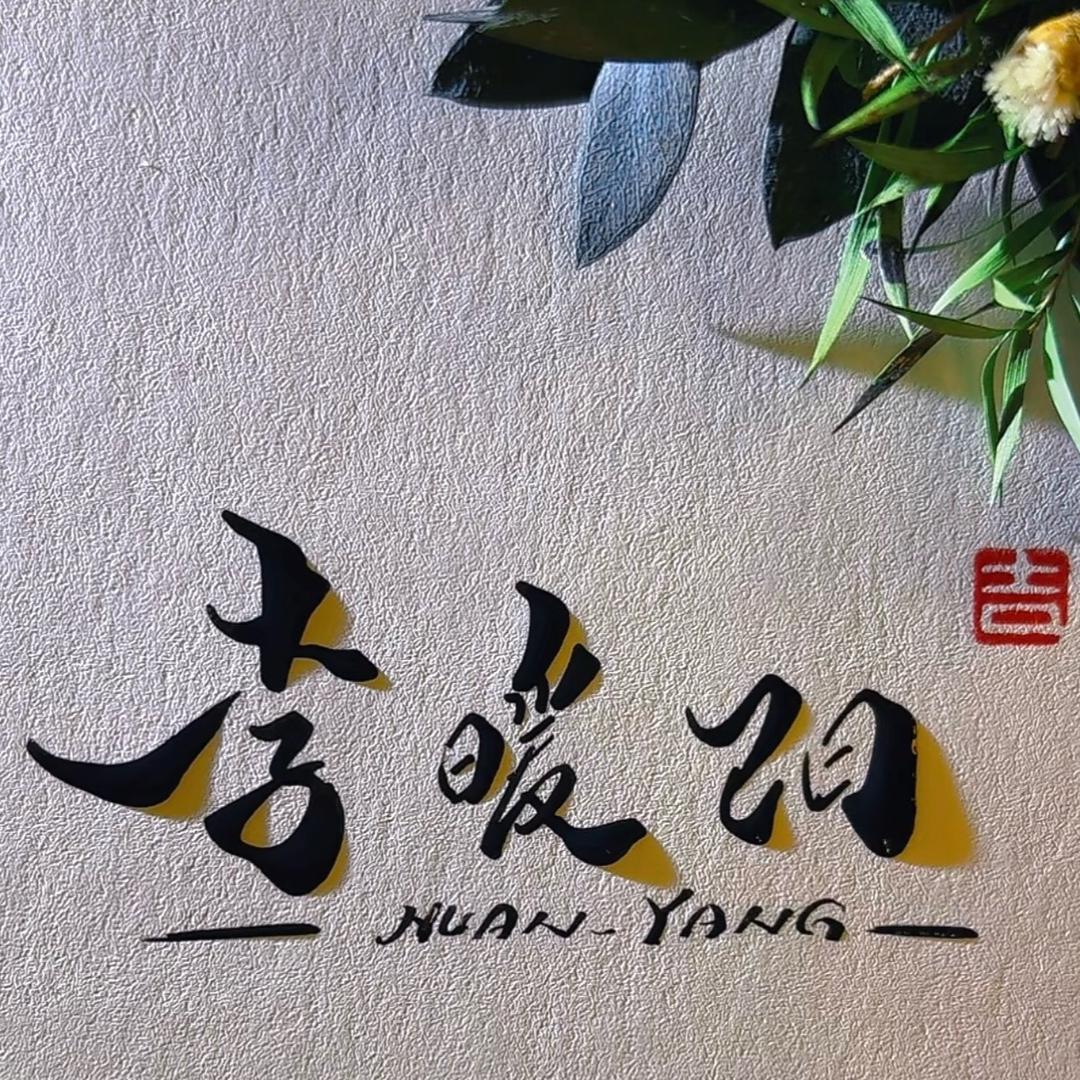 李暖阳
NUAN-YANG